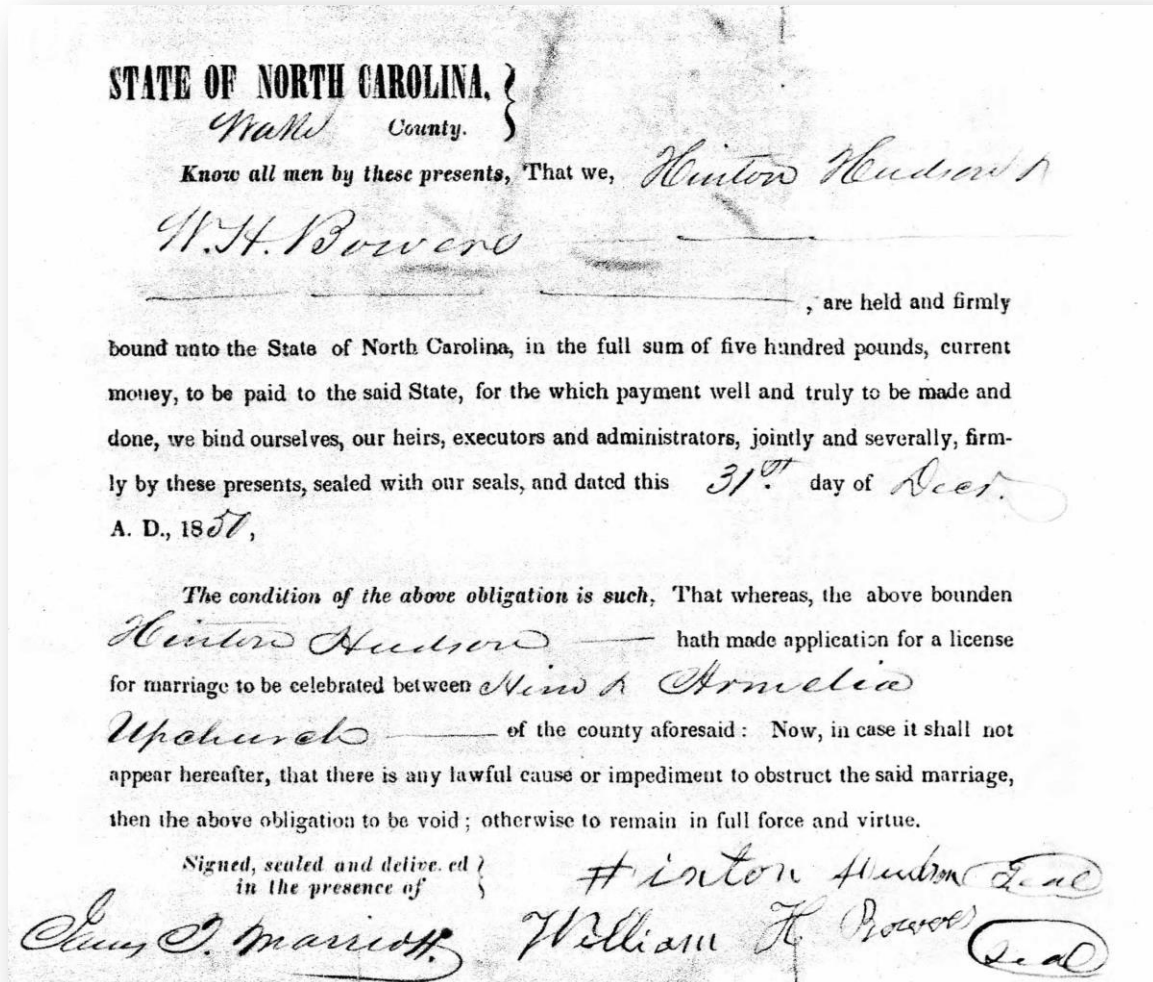 STATE OF NORTH CAROLINA,
Wake County.
Know all men by these presents, That we, Hinton Hudson &
W. H. Bowers
, are held and firmly
bound unto the State of North Carolina, in the full sum of five hundred pounds, current
money, to be paid to the said State, for the which payment well and truly to be made and
done, we bind ourselves, our heirs, executors and administrators, jointly and severally, firm-
ly by these presents, sealed with our seals, and dated this 31st. day of Decr.
A. D., 18
The condition of the above obligation is such, That whereas, the above bounden
Hinton Hudson hath made application for a license
for marriage to be celebrated between Him & Armelia
Upchurch of the county aforesaid : Now, in case it shall not
appear hereafter, that there is any lawful cause or impediment to obstruct the said marriage,
then the above obligation to be void ; otherwise to remain in full force and virtue.
Signed, sealed and delive. ed
in the presence of
Hinton Hudson Seal
T. Marriott.
William H Seal